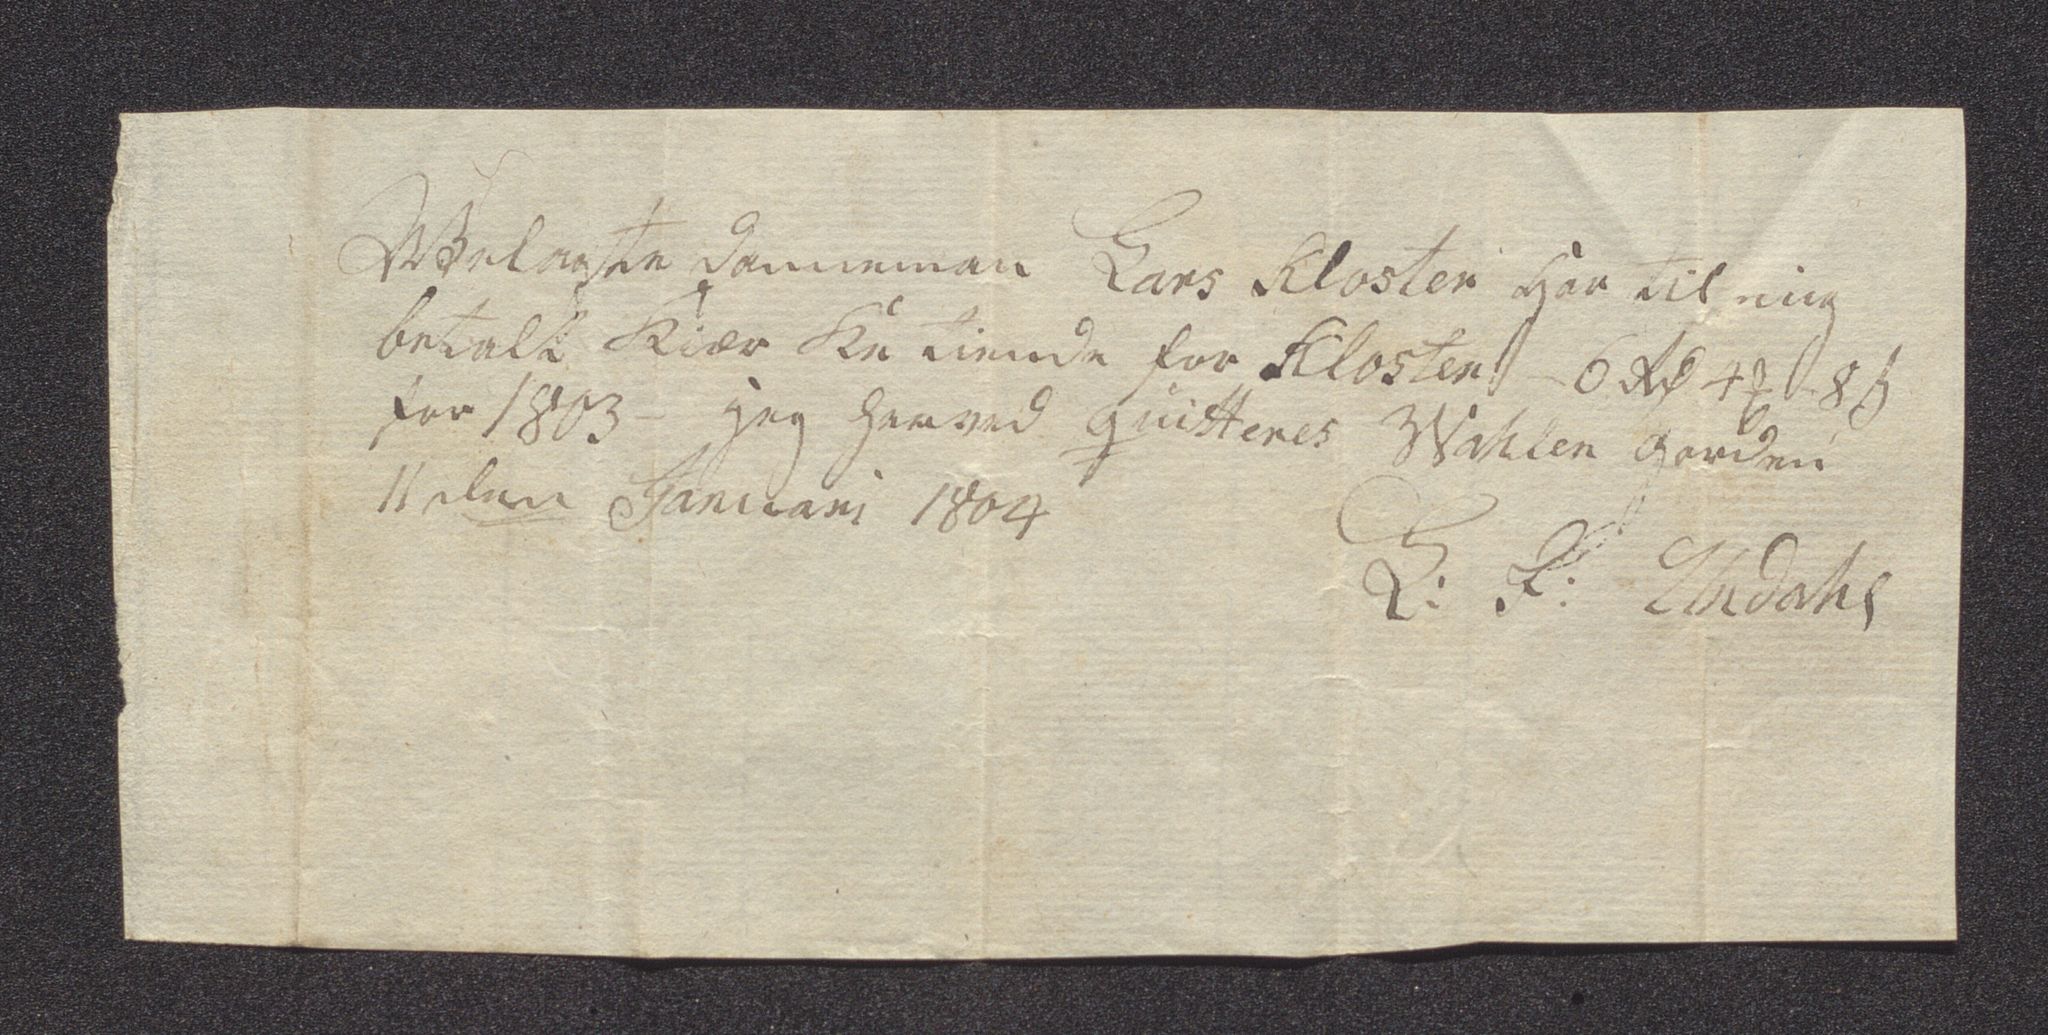 Welagte danneman Lars Kloster Har til mig
betalt Kiær Ke tiende for Kloster - 6 Rd 4 8 ß
for 1803 - Hvor herved quitteres Wahlen garden
11 den Januari 1804
L: F: Undahl